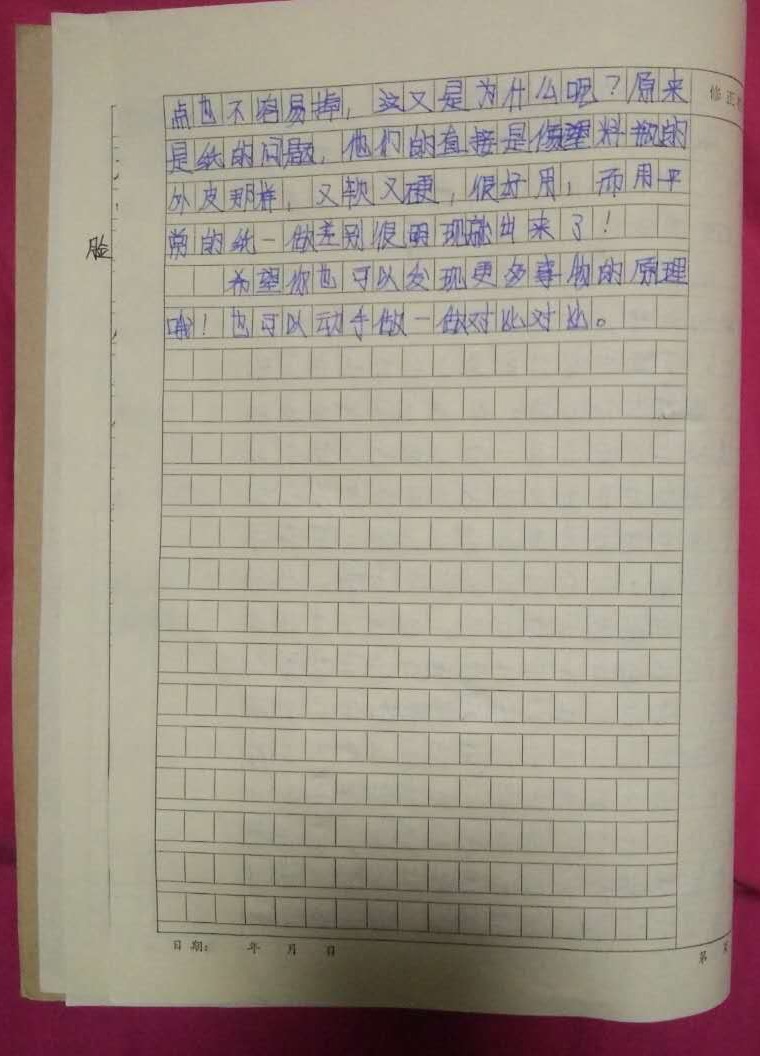 修正
点也不容易掉，这又是为什么呢？原来
是纸的问题，他们的直接是像塑料瓶的
外皮那样，又软又硬，很好用，而用平
常的纸一做差别很明现就出来了！
脸
希望你也可以发现更多事物的原理
哦！也可以动手做一做对比对比。
日期： 年 月 日
第